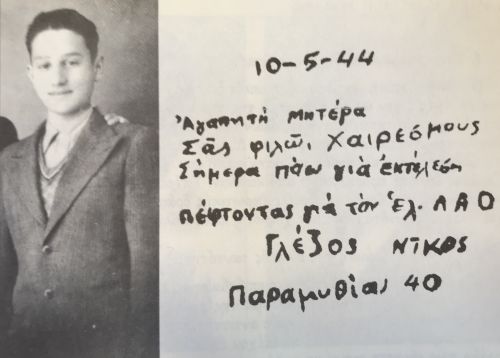 10-5-44
Ἀγαπητή Μητέρα
Σᾶς φιλῶ, Χαιρεσμους
Σήμερα πάω γιὰ ἐκτέλεση
πέφτοντας γιὰ τὸν Ἑλ. ΛΑΟ
Γλέζος ΝΙΚΟΣ
Παραμυθίας 40